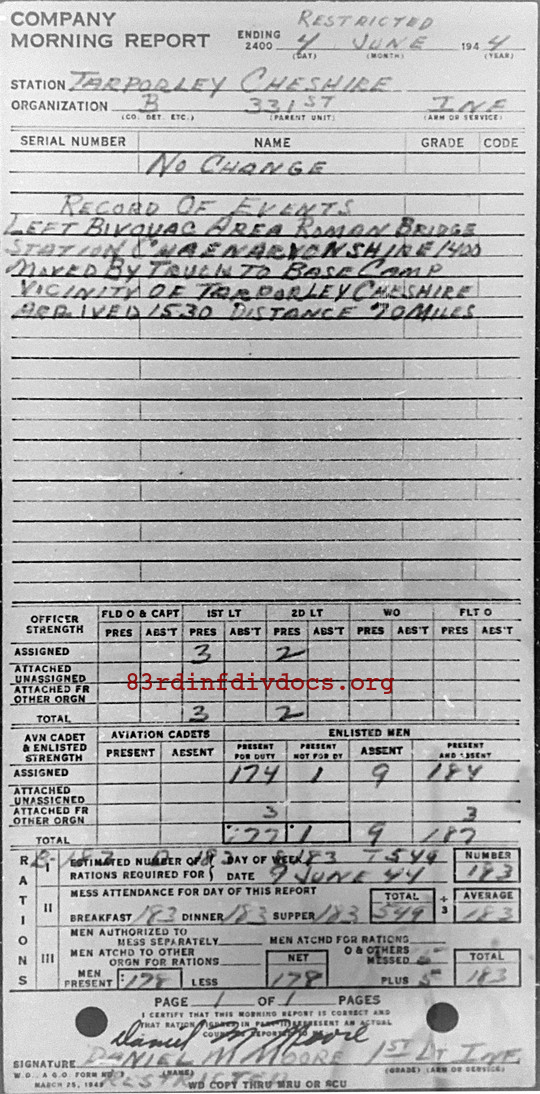 COMPANY
MORNING REPORT
RESTRICTED
ENDING 2400 4 JUNE 1944
(DAY) (MONTH) (YEAR)
STATION TARPORLEY CHESHIRE
ORGANIZATION B 331ST INF
(CO. DET. ETC.) (PARENT UNIT) (ARM OR SERVICE)
SERIAL NUMBER NAME GRADE CODE
NO CHANGE
RECORD OF EVENTS
LEFT BIVOUAC AREA ROMAN BRIDGE
STATION CHAENARVONSHIRE 1400
MOVED BY TRUCK TO BASE CAMP
VICINITY OF TARPORLEY CHESHIRE
ARRIVED 1530 DISTANCE 70 MILES
OFFICER STRENGTH FLD O & CAPT 1ST LT 2D LT WO FLT O
PRES ABS'T PRES ABS'T PRES ABS'T PRES ABS'T PRES ABS'T
ASSIGNED 3 2
ATTACHED UNASSIGNED
83rdinfdivdocs.org
ATTACHED FR OTHER ORGN
TOTAL 3 2
AVN CADET & ENLISTED STRENGTH AVIATION CADETS ENLISTED MEN
PRESENT ABSENT PRESENT FOR DUTY PRESENT NOT FOR DY ABSENT PRESENT AND ABSENT
ASSIGNED 174 1 9 184
ATTACHED UNASSIGNED
ATTACHED FR OTHER ORGN 3 3
TOTAL 177 1 9 187
RATIONS
I ESTIMATED NUMBER OF RATIONS REQUIRED FOR DAY OF WEEK T 549 NUMBER
DATE 7 JUNE 44 183
II MESS ATTENDANCE FOR DAY OF THIS REPORT TOTAL ÷ 3 AVERAGE
BREAKFAST 183 DINNER 183 SUPPER 183 549 183
III MEN AUTHORIZED TO MESS SEPARATELY MEN ATCHD FOR RATIONS
MEN ATCHD TO OTHER ORGN FOR RATIONS NET O & OTHERS MESSED 5 TOTAL
MEN PRESENT 178 LESS 178 PLUS 5 183
PAGE 1 OF 1 PAGES
I CERTIFY THAT THIS MORNING REPORT IS CORRECT AND
Daniel M Moore
SIGNATURE DANIEL M MOORE 1ST LT INF
(NAME) (GRADE) (ARM OR SERVICE)
W.D., A.G.O. FORM NO. 1
MARCH 25, RESTRICTED WD COPY THRU MRU OR ACU